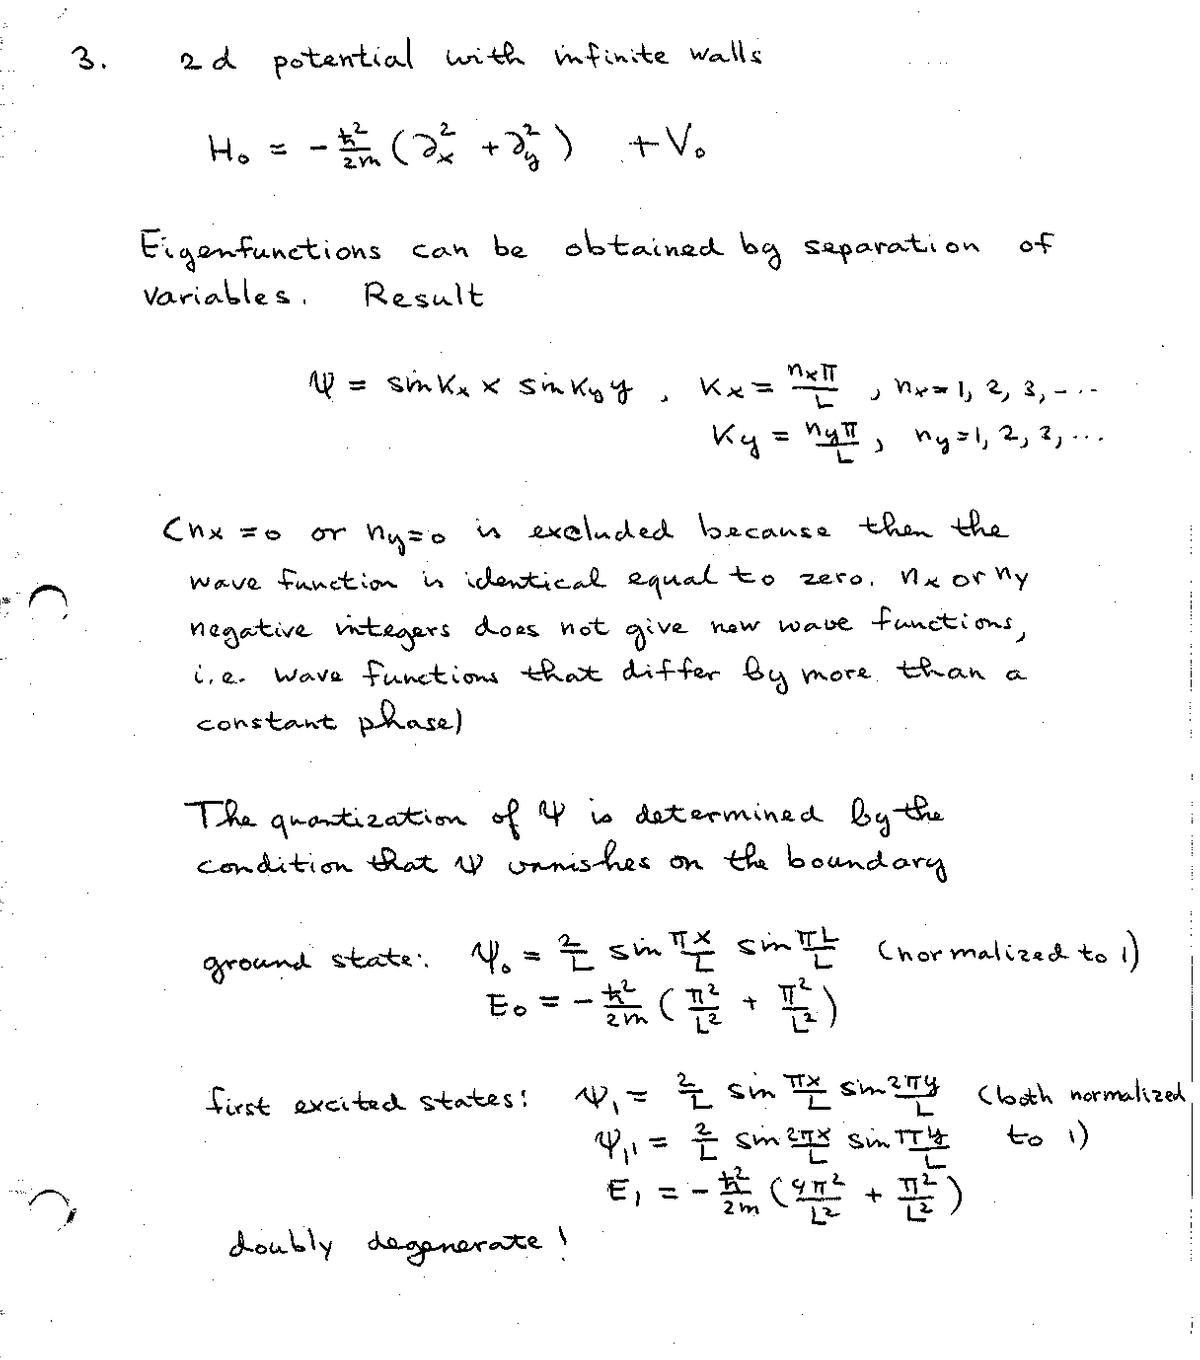 3. 2d potential with infinite walls
H₀ = - ħ²/2m (∂x² + ∂y²) + V₀
Eigenfunctions can be obtained by separation of
variables. Result
ψ = sin Kx x sin Ky y , Kx = nxπ/L , nx = 1, 2, 3, - . . .
Ky = nyπ/L , ny = 1, 2, 3, ...
(nx = 0 or ny = 0 is excluded because then the
wave function is identical equal to zero. nx or ny
negative integers does not give new wave functions,
i.e. wave functions that differ by more than a
constant phase)
The quantization of ψ is determined by the
condition that ψ vanishes on the boundary
ground state: ψ₀ = 2/L sin πx/L sin πL/L (normalized to 1)
E₀ = - ħ²/2m ( π²/L² + π²/L² )
first excited states: ψ₁ = 2/L sin πx/L sin 2πy/L (both normalized
ψ₁₁ = 2/L sin 2πx/L sin πy/L to 1)
E₁ = - ħ²/2m ( 4π²/L² + π²/L² )
doubly degenerate !